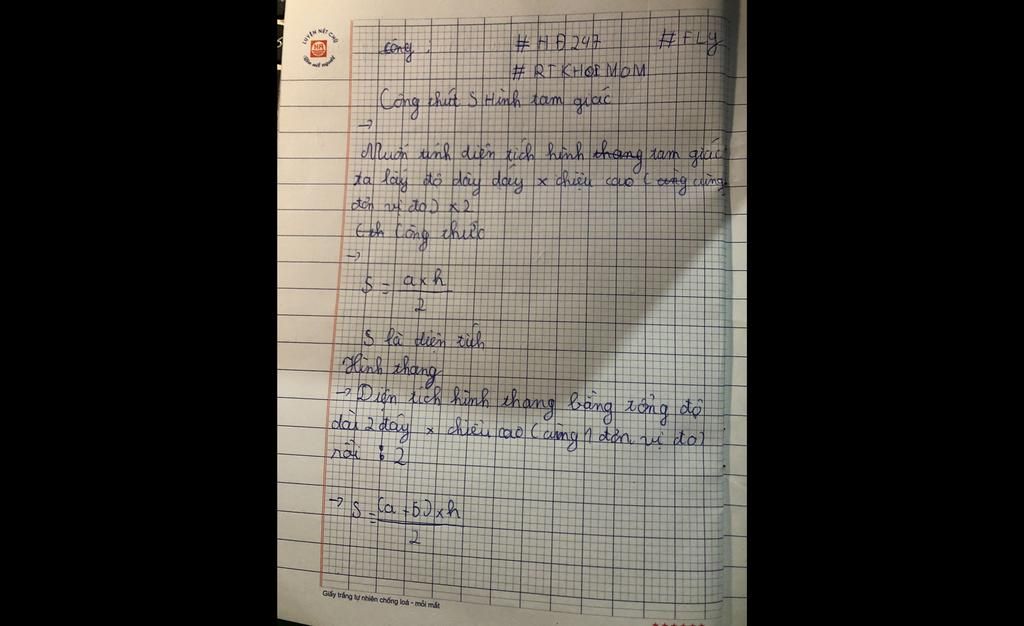 LUYỆN NÉT CHỮ
HA
công : #HĐ247 #FLY
#RTKHOIMOM
Công thứt S Hình tam giác
→
Muốn tính diện tích hình thang tam giác
ta lấy độ dày dấy × chiều cao ( cùng cùng
đơn vị đo) × 2
Công thức
→
S = a × h
2
S là diện tích
Hình thang
→ Diện tích hình thang bằng tổng độ
dài 2 đáy × chiều cao ( cùng 1 đơn vị đo)
rồi : 2
→ S = (a + b) × h
2
Giấy trắng tự nhiên chống loá - mỏi mắt